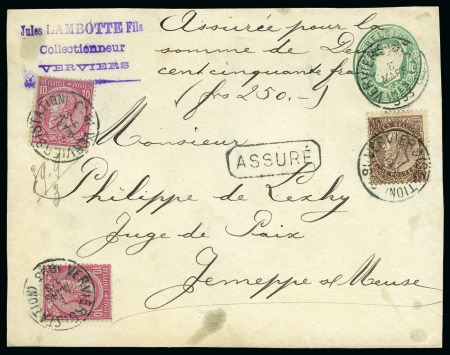 Jules LAMBOTTE Fils
Collectionneur
VERVIERS
Assurée pour la
somme de De
cent cinquante fra
(frs 250.-)
Monsieur
ASSURÉ
Philippe de Lexhy
Juge de Paix
Jemeppe s/ Meuse
BELGIQUE
10 10
VERVIERS (STATION)
VERVIERS (STATION)
VERVIERS (STATION)